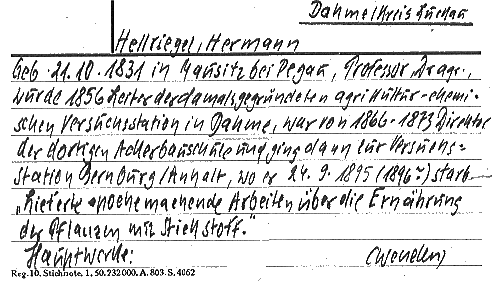 Dahme/Kreis Luckau
Hellriegel, Hermann
Geb. 21.10.1831 in Mausitz bei Pegau, Professor Dr. agr.,
wurde 1856 Leiter der damals gegründeten agrikultur-chemi-
schen Versuchsstation in Dahme, war von 1866-1873 Direktor
der dortigen Ackerbauschule und ging dann zur Versuchs-
station Bernburg/Anhalt, wo er 24.9.1895 (1896?) starb.
"Lieferte epochemachende Arbeiten über die Ernährung
der Pflanzen mit Stickstoff."
Hauptwerke: (wenden)
Reg. 10. Stichnote. 1, 50. 232000. A. 803. S. 4062